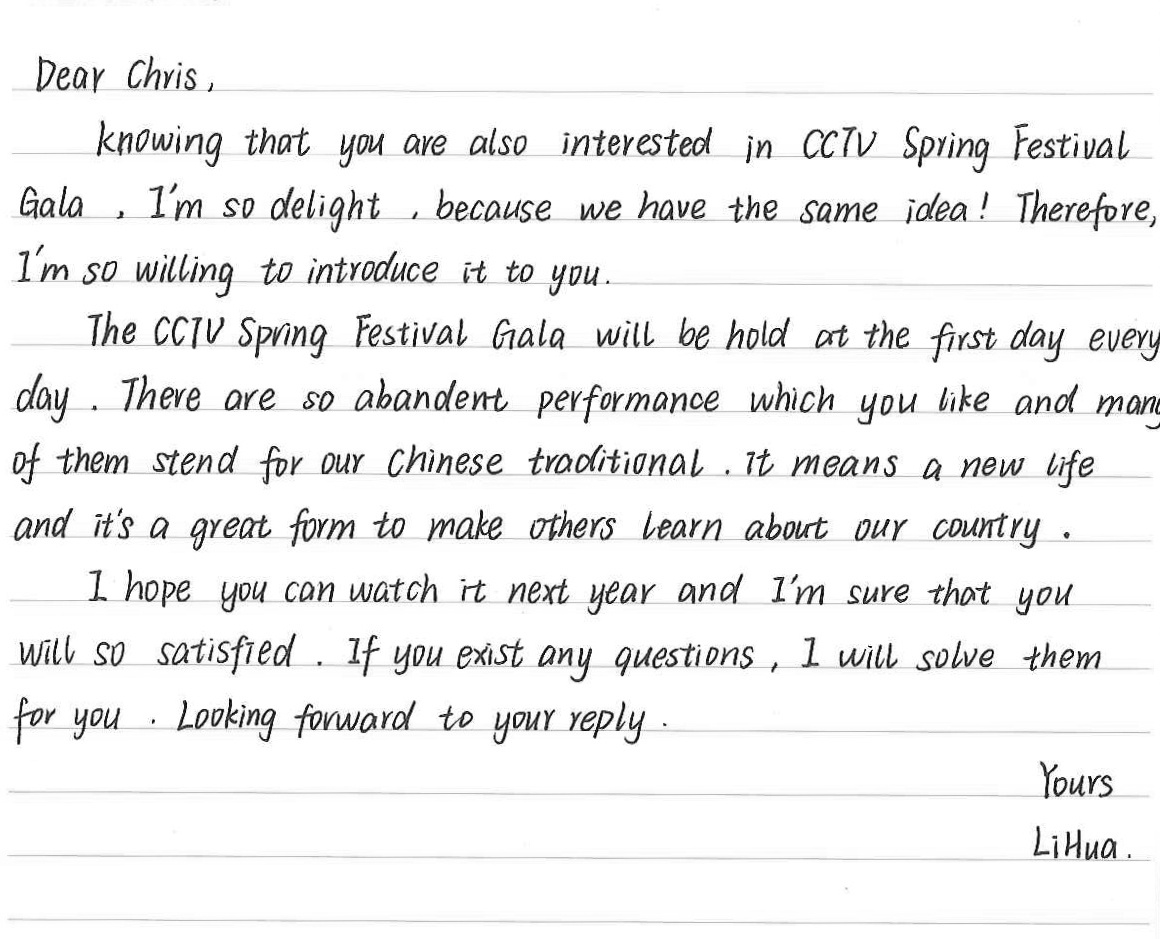 Dear Chris,
knowing that you are also interested in CCTV Spring Festival
Gala , I'm so delight , because we have the same idea! Therefore,
I'm so willing to introduce it to you.
The CCTV Spring Festival Gala will be hold at the first day every
day . There are so abandent performance which you like and many
of them stend for our Chinese traditional . it means a new life
and it's a great form to make others learn about our country .
I hope you can watch it next year and I'm sure that you
will so satisfied . If you exist any questions , I will solve them
for you . Looking forward to your reply .
Yours
LiHua .